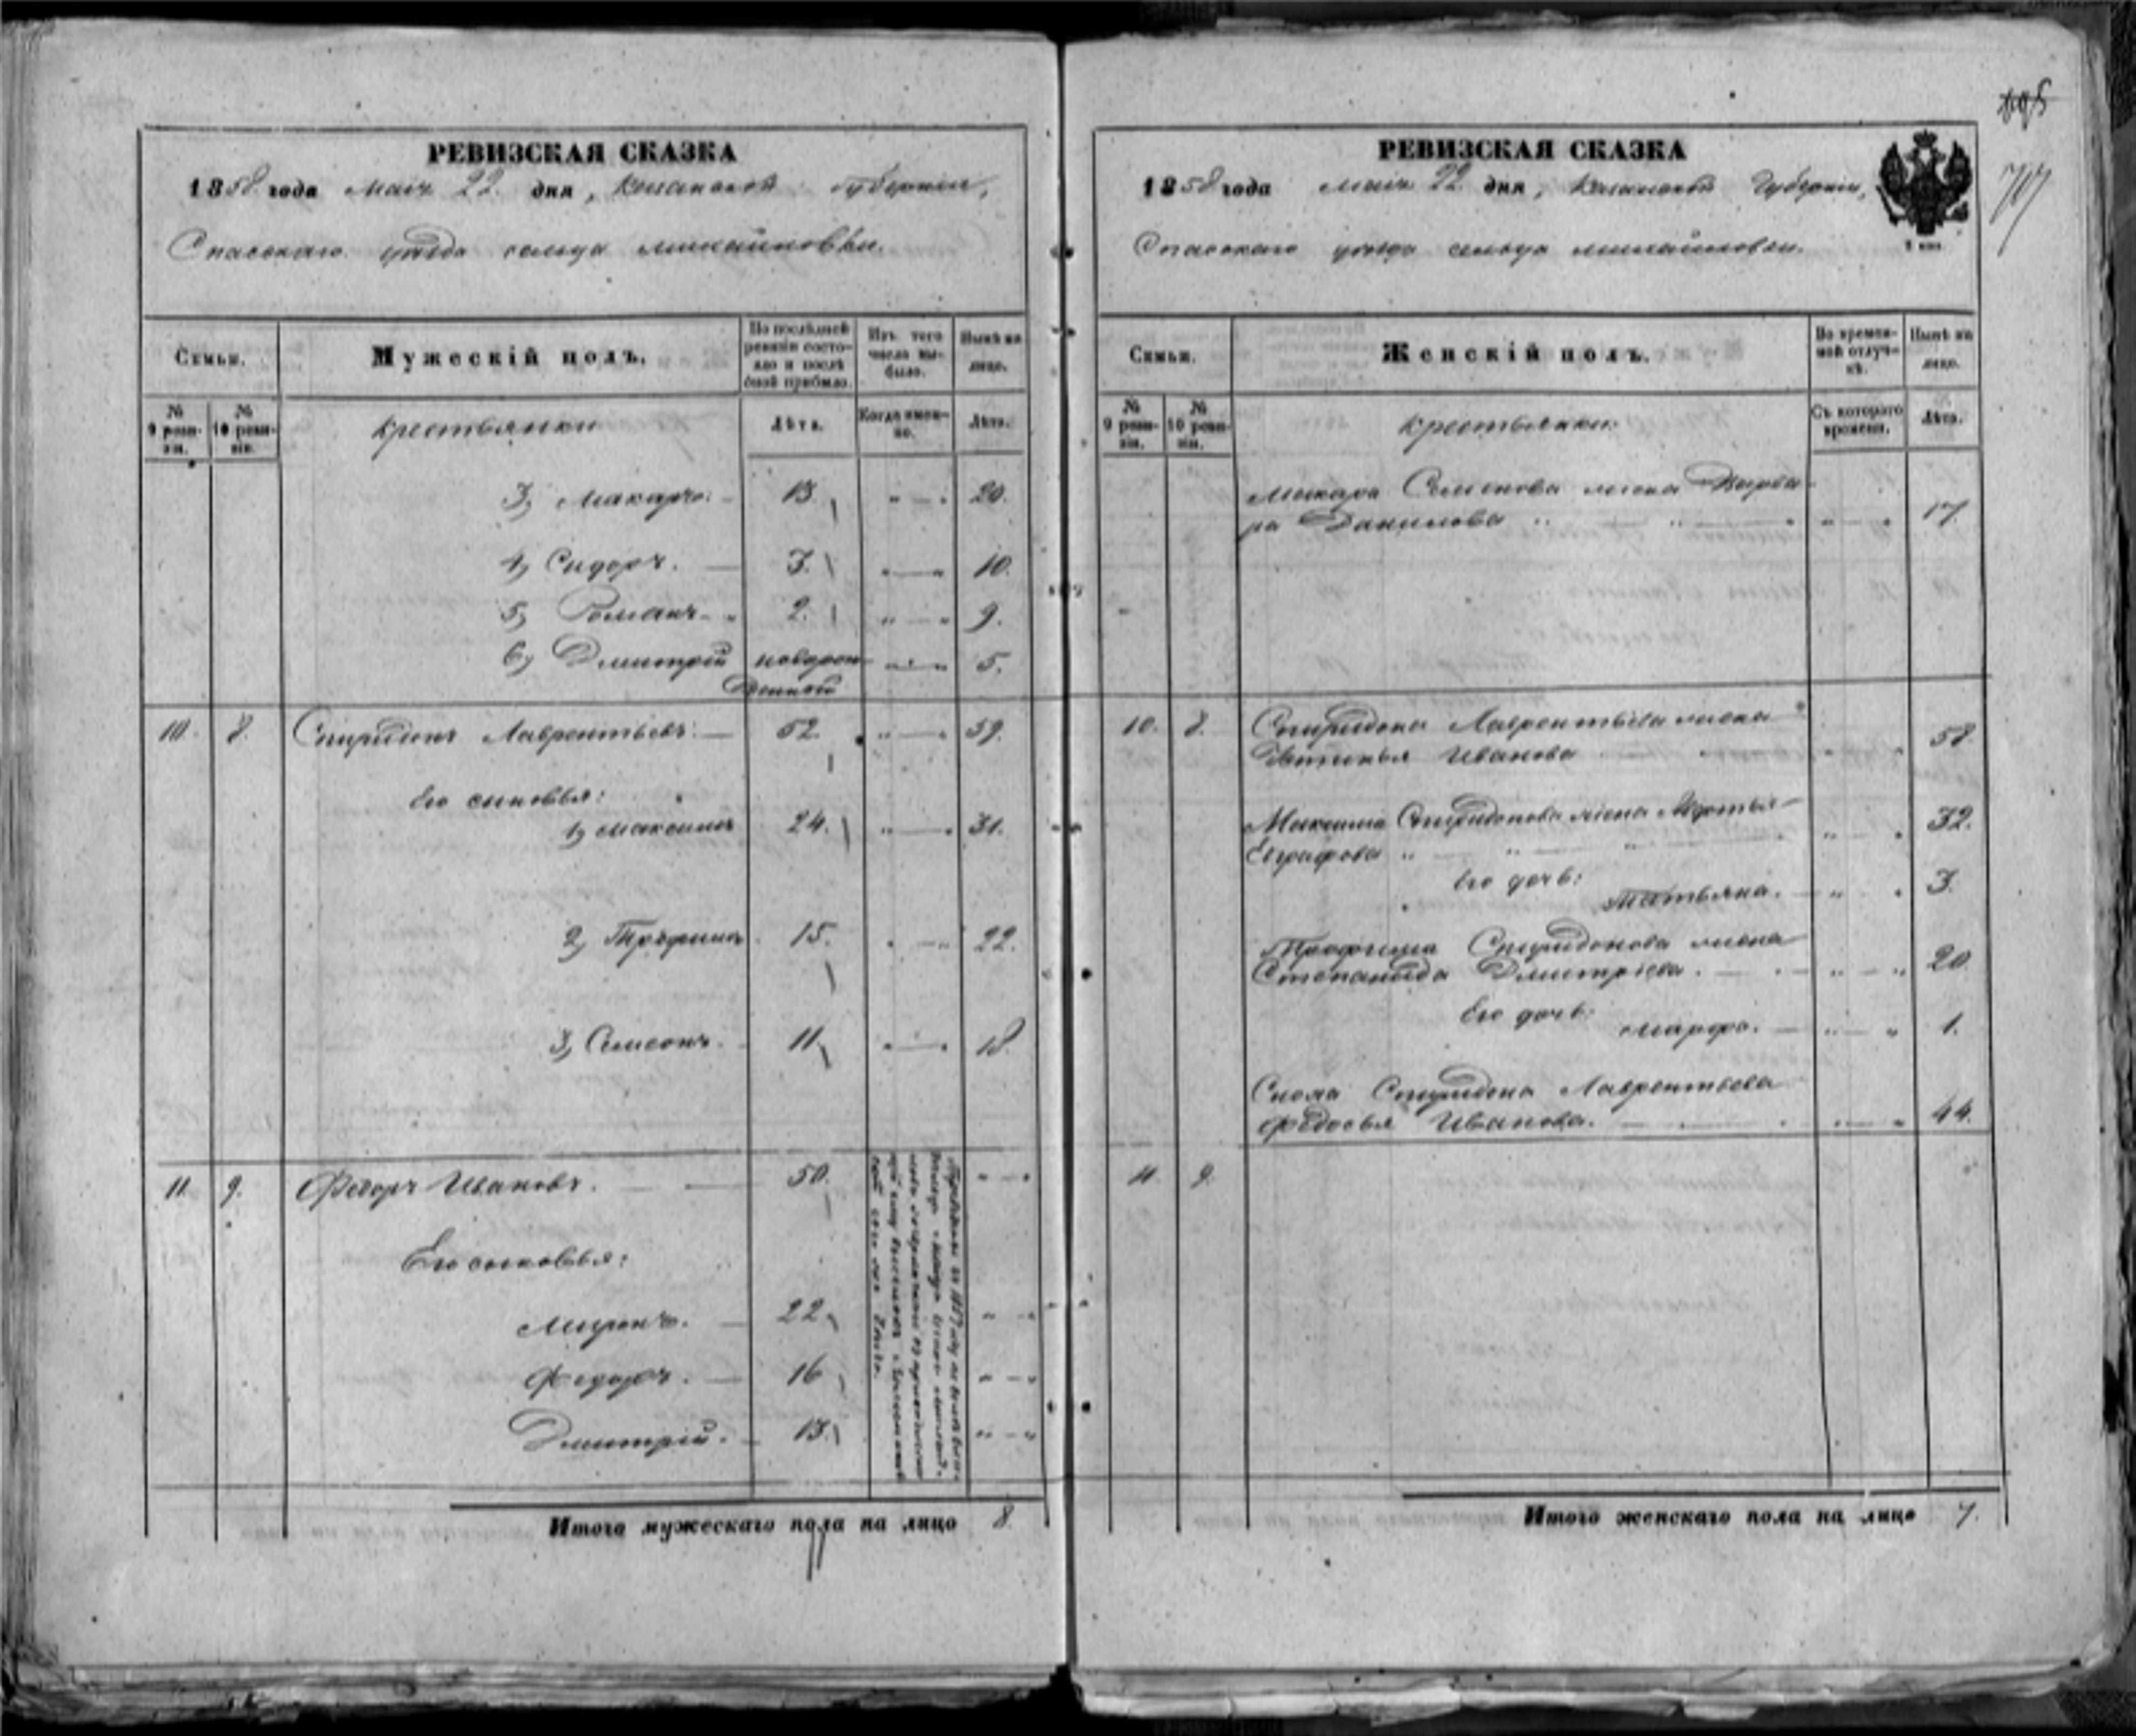 РЕВИЗСКАЯ СКАЗКА
1858 года Маія 22 дня, Казанской губерніи,
Спасскаго уезда сельца михайловки.
Семьи.
Мужескій полъ.
По послѣдней ревизіи состояло и послѣ оной прибыло.
Изъ того числа выбыло.
Нынѣ на лицо.
№ 9 ревизіи.
№ 10 ревизіи.
крестьянки
Лѣта.
Когда именно.
Лѣта.
3, Макаръ. 13. " — " 20.
4, Сидоръ. — 3. " — " 10.
5, Романъ - " 2. " — " 9.
6, Дмитрій новорож- " — " 5.
денной
10. 8. Спиридонъ Лаврентьевъ. — 52. " — " 59.
Его сыновья:
1, Максимъ 24. " — " 31.
2, Трофимъ 15. " — " 22.
3, Симеонъ. 11. " — " 18.
11. 9. Федоръ Ивановъ. — 50. " — "
Его сыновья:
Миронъ. — 22. " — "
Федоръ. — 16 " — "
Дмитрій. — 13. " — "
въ 1857
Итого мужескаго пола на лицо 8.
707
РЕВИЗСКАЯ СКАЗКА
1858 года Маія 22 дня, Казанской Губерніи,
Спасскаго уезда сельца михайловки.
Семьи.
Женскій полъ.
Во временной отлучкѣ.
Нынѣ на лицо.
№ 9 ревизіи.
№ 10 ревизіи.
крестьянки.
Съ котораго времени.
Лѣта.
Макара Семенова жена Варва-
ра Данилова " — " — " " — " 17.
10. 8. Спиридона Лаврентьева жена
Иванова " — " 58.
Максима Спиридонова жена
Евграфова " — " 32.
Его дочь:
Татьяна. — " — " 3.
Трофима Спиридонова жена
Степанида Дмитріева. — " — " 20
Его дочь:
Марфа. — " — " 1.
Сноха Спиридона Лаврентьева
Федосья Иванова. — " — " 44.
11. 9.
Итого женскаго пола на лицо 7.